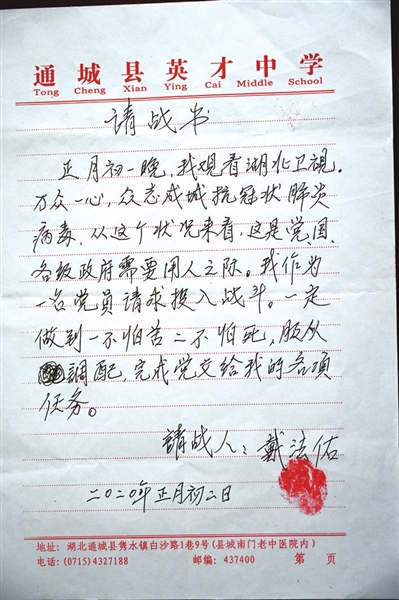 通城县英才中学
Tong Cheng Xian Ying Cai Middle School
请战书
正月初一晚,我观看湖北卫视。
万众一心,众志成城抗冠状肺炎
病毒,从这个状况来看,这是党、国、
各级政府需要用人之际。我作为
一名党员请求投入战斗。一定
做到一不怕苦二不怕死,服从
調配,完成党交给我的各项
任务。
請战人:戴法佑
二〇二〇年正月初二日
地址:湖北通城县隽水镇白沙路1巷9号(县城南门老中医院内)
电话:(0715)4327188 邮编:437400 第 页